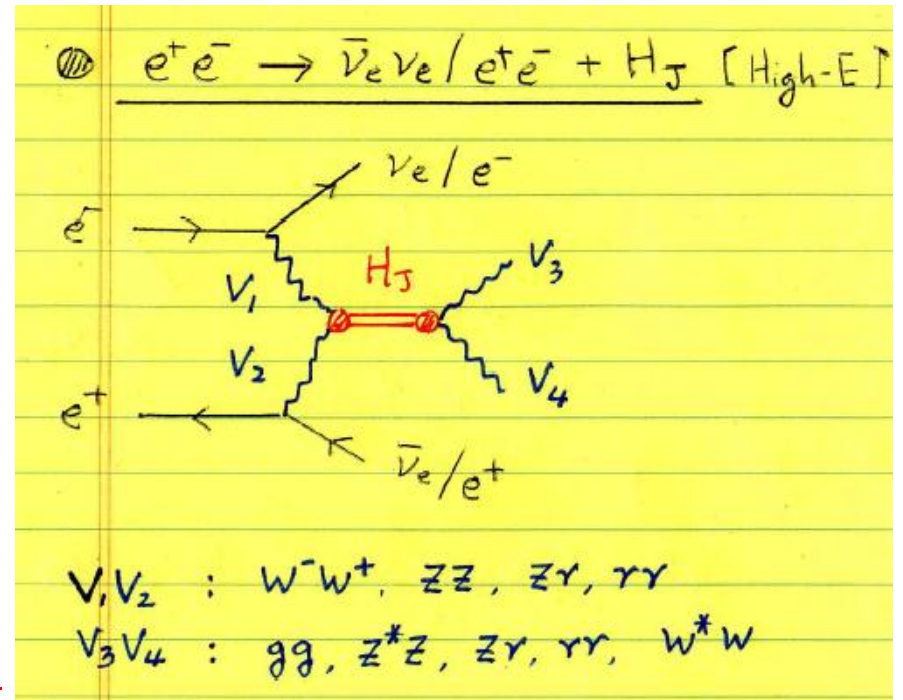 e⁺e⁻ → ν̄ₑνₑ/e⁺e⁻ + H_J [High-E]
νₑ/e⁻
e⁻
H_J
V₃
V₁
V₂
V₄
e⁺
ν̄ₑ/e⁺
V₁V₂ : W⁻W⁺, ZZ, Zγ, γγ
V₃V₄ : gg, Z*Z, Zγ, γγ, W*W